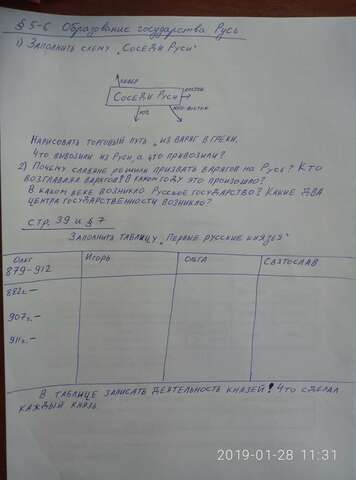 § 5-6 Образование государства Русь
1) Заполнить схему „Соседи Руси"
север
Соседи Руси
восток
юг
юго-восток
Нарисовать торговый путь „из варяг в греки.
Что вывозили из Руси, а что привозили?
2) Почему славяне решили призвать варягов на Русь? Кто
возглавлял варягов? В каком году это произошло?
В каком веке возникло Русское государство? Какие два
центра государственности возникло?
Стр. 39 и § 7
Заполнить таблицу „Первые русские князья"
Олег
879-912
Игорь
Ольга
Святослав
882г.-
907г.-
911г.-
В таблице записать деятельность князей! Что сделал
каждый князь
2019-01-28 11:31